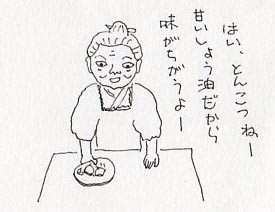 はい、とんこつねー
甘いしょう油だから
味がちがうよー